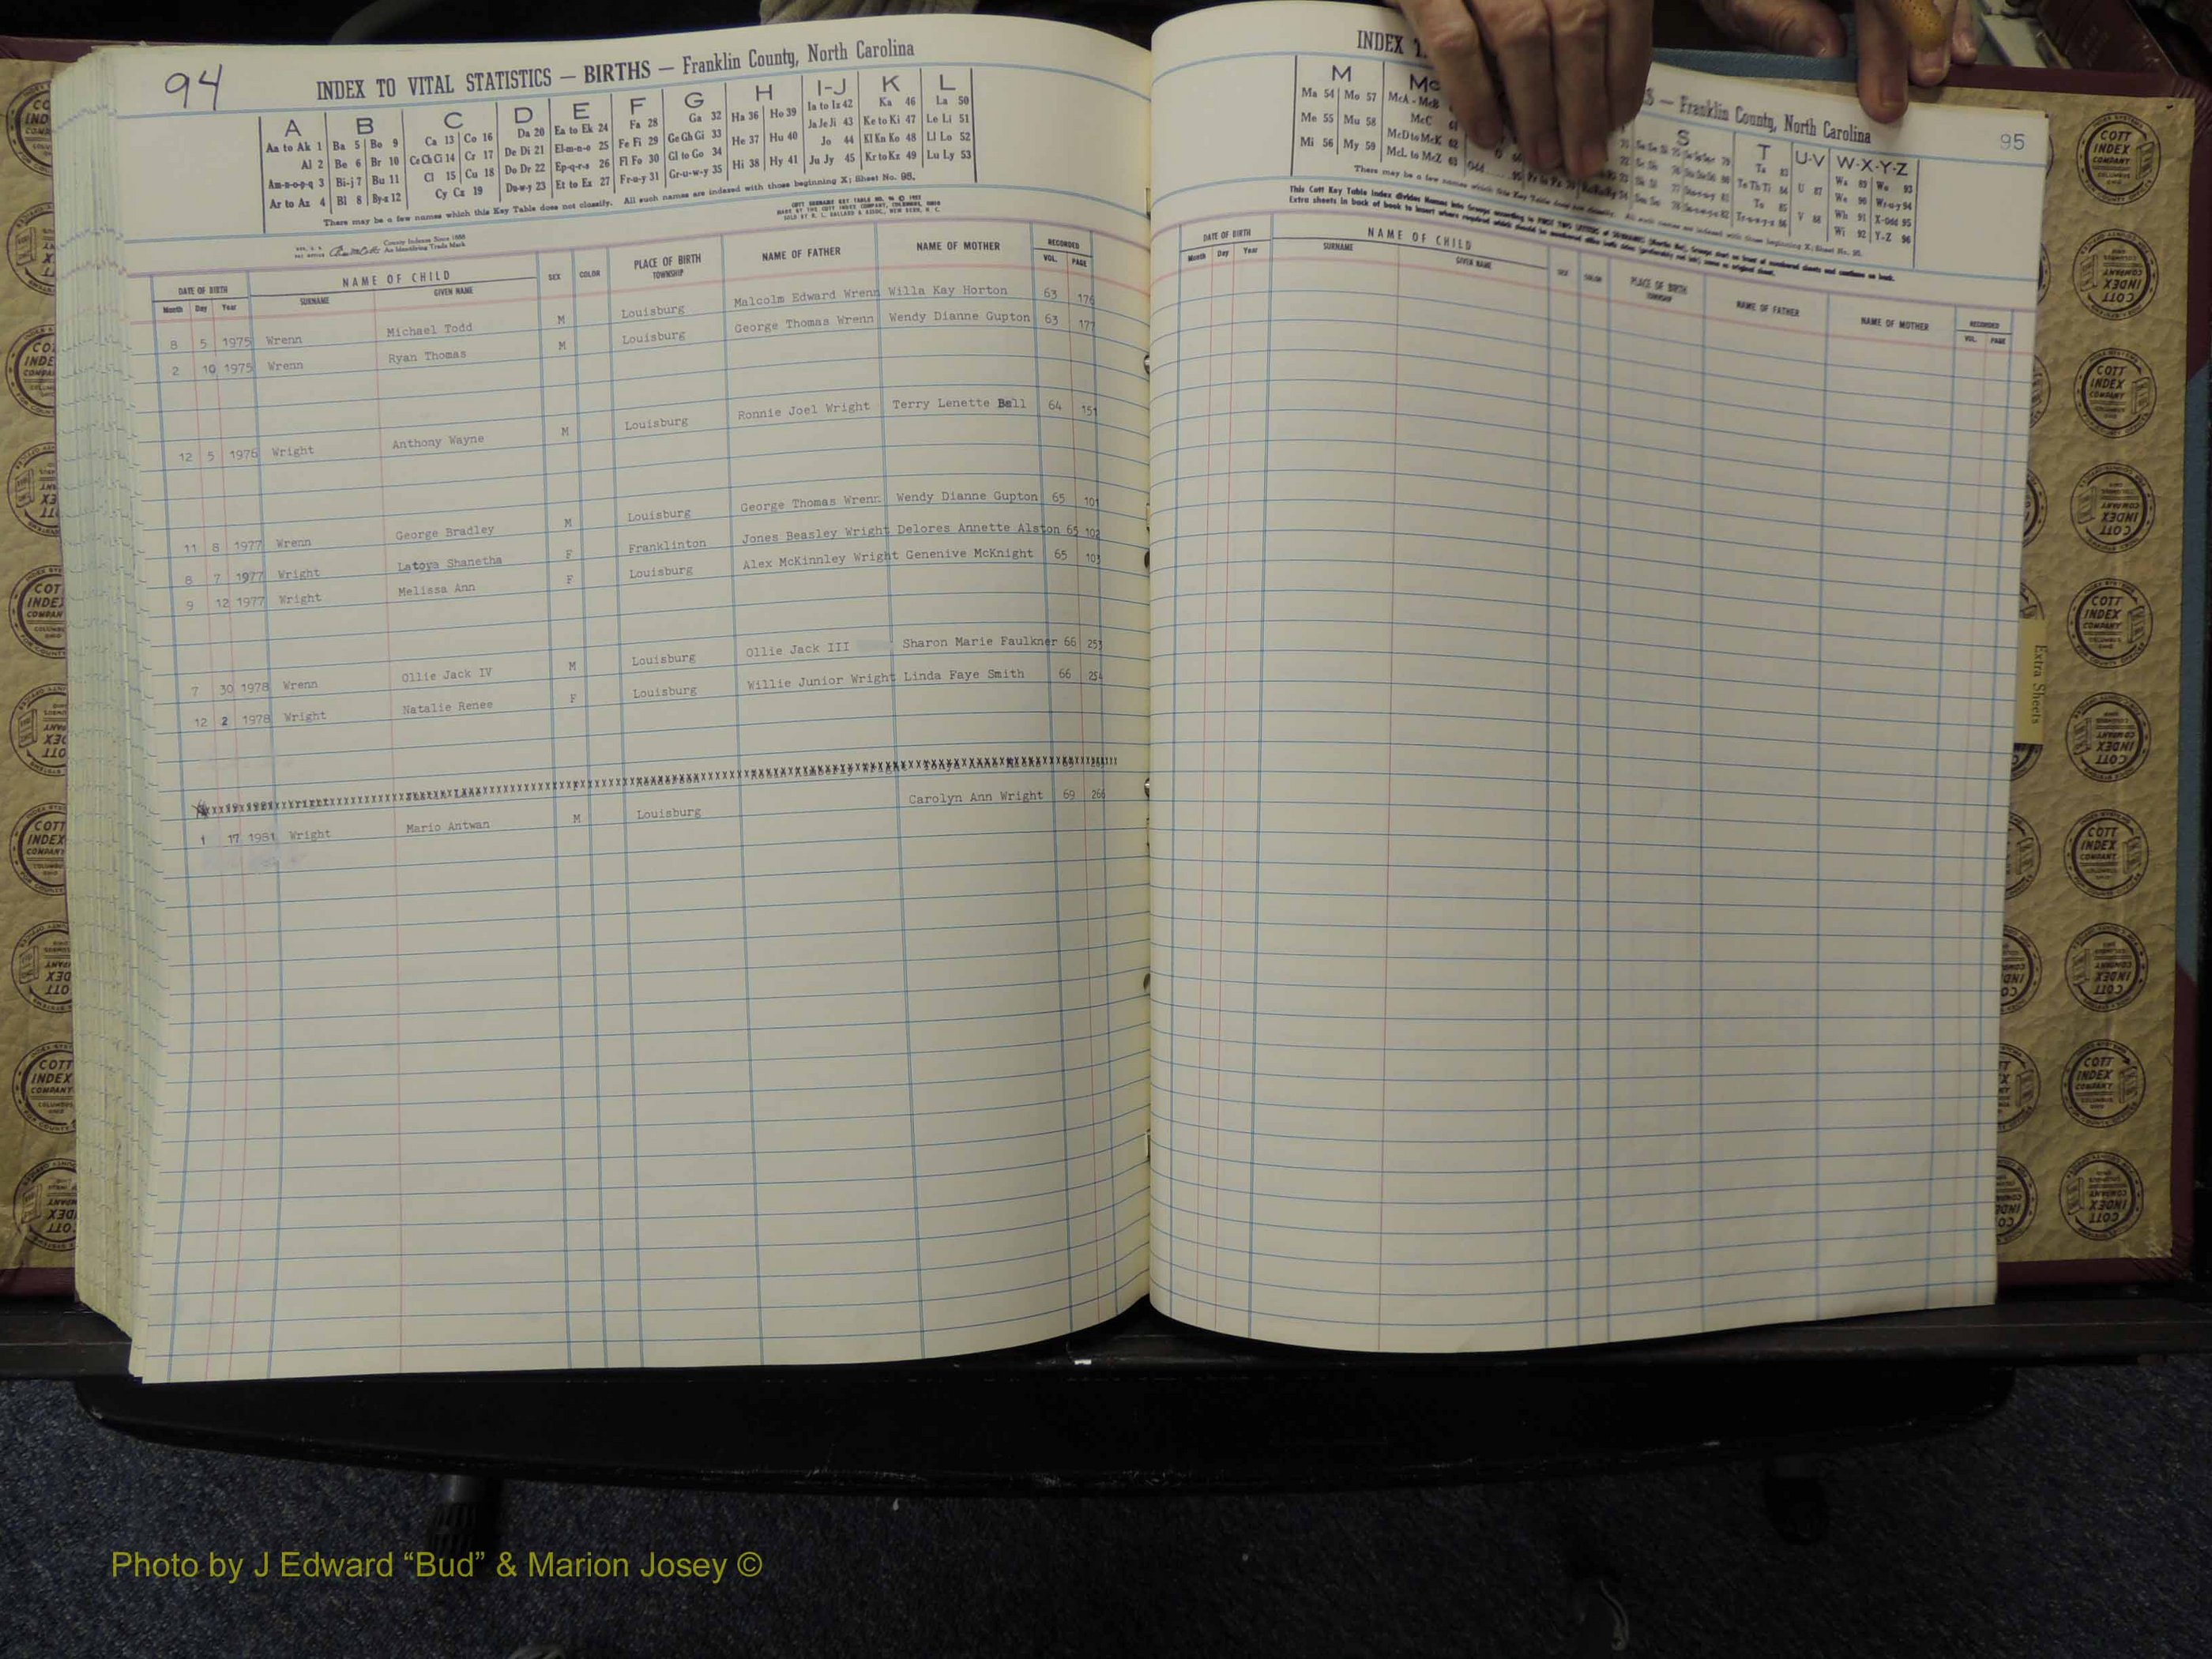 94
INDEX TO VITAL STATISTICS — BIRTHS — Franklin County, North Carolina
A B C D E F G H I-J K L
Aa to Ak 1 Ba 5 Bo 9 Ca 13 Co 16 Da 20 Ea to Ek 24 Fa 28 Ga 32 Ha 36 Ho 39 Ia to Iz 42 Ka 46 La 50
Al 2 Be 6 Br 10 Ce Ch Ci 14 Cr 17 De Di 21 El-m-n-o 25 Fe Fi 29 Ge Gh Gi 33 He 37 Hu 40 Ja Je Ji 43 Ke to Ki 47 Le Li 51
Am-n-o-p-q 3 Bi-j 7 Bu 11 Cl 15 Cu 18 Do Dr 22 Ep-q-r-s 26 Fl Fo 30 Gl to Go 34 Hi 38 Hy 41 Jo 44 Kl Kn Ko 48 Ll Lo 52
Ar to Az 4 Bl 8 By-z 12 Cy Cz 19 Du-w-y 23 Et to Ez 27 Fr-u-y 31 Gr-u-w-y 35 Ju Jy 45 Kr to Kz 49 Lu Ly 53
There may be a few names which this Key Table does not classify. All such names are indexed with those beginning X; Sheet No. 95.
County Indexes Since 1888
An Identifying Trade Mark
DATE OF BIRTH NAME OF CHILD SEX COLOR PLACE OF BIRTH TOWNSHIP NAME OF FATHER NAME OF MOTHER RECORDED
Month Day Year SURNAME GIVEN NAME VOL. PAGE
8 5 1975 Wrenn Michael Todd M Louisburg Malcolm Edward Wrenn Willa Kay Horton 63 176
2 10 1975 Wrenn Ryan Thomas M Louisburg George Thomas Wrenn Wendy Dianne Gupton 63 177
12 5 1976 Wright Anthony Wayne M Louisburg Ronnie Joel Wright Terry Lenette Bell 64 151
11 8 1977 Wrenn George Bradley M Louisburg George Thomas Wrenn Wendy Dianne Gupton 65 101
8 7 1977 Wright Latoya Shanetha F Franklinton Jones Beasley Wright Delores Annette Alston 65 102
9 12 1977 Wright Melissa Ann F Louisburg Alex McKinnley Wright Genenive McKnight 65 103
7 30 1978 Wrenn Ollie Jack IV M Louisburg Ollie Jack III Sharon Marie Faulkner 66 253
12 2 1978 Wright Natalie Renee F Louisburg Willie Junior Wright Linda Faye Smith 66 254
1 17 1981 Wright Mario Antwan M Louisburg Carolyn Ann Wright 69 266
INDEX
S — Franklin County, North Carolina
95
M Mc S T U-V W-X-Y-Z
Ma 54 Mo 57 McA - McB
Me 55 Mu 58 McC
Mi 56 My 59 McD to McK 62
McL to McZ 63
Ta 83 Te Th Ti 84 To 85 Tr-u-y-z 86
U 87 V 88
Wa 89 We 90 Wh 91 Wi 92 Wo 93 Wr-u-y 94 X-Odd 95 Y-Z 96
DATE OF BIRTH NAME OF CHILD SEX COLOR PLACE OF BIRTH TOWNSHIP NAME OF FATHER NAME OF MOTHER RECORDED
Month Day Year SURNAME GIVEN NAME VOL. PAGE
Extra Sheets
COTT INDEX COMPANY COLUMBUS OHIO
Photo by J Edward “Bud” & Marion Josey ©